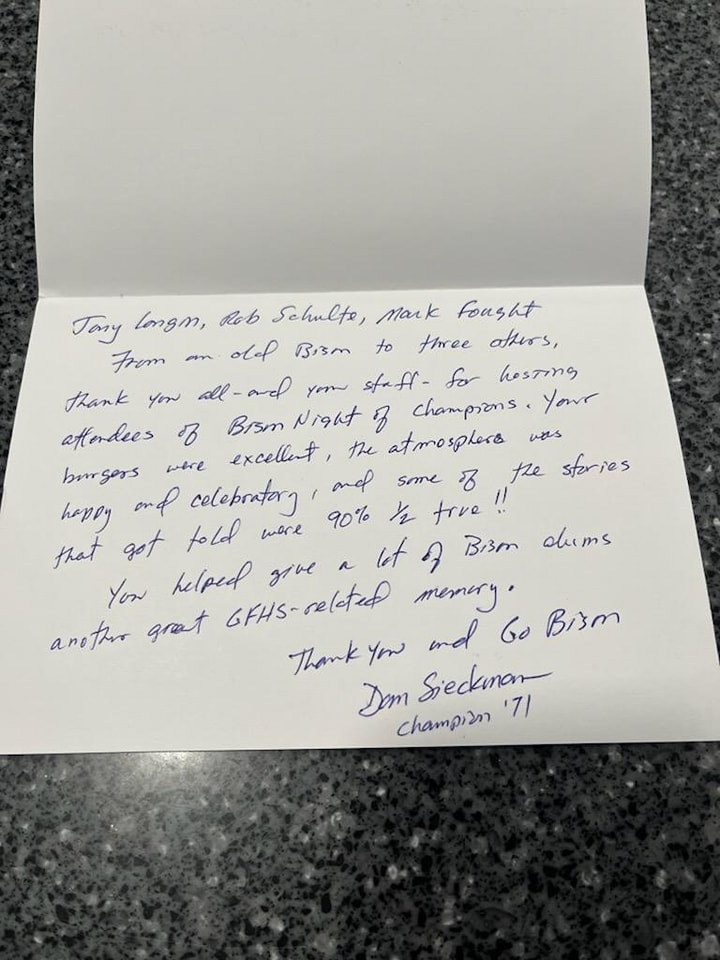 Tony Longin, Rob Schulte, Mark Fought
From an old Bison to three others,
thank you all-and your staff- for hosting
attendees of Bison Night of Champions. Your
burgers were excellent, the atmosphere was
happy and celebratory, and some of the stories
that got told were 90% 1/2 true!!
You helped give a lot of Bison alums
another great GFHS-related memory.
Thank You and Go Bison
Dan Sieckman
Champion '71